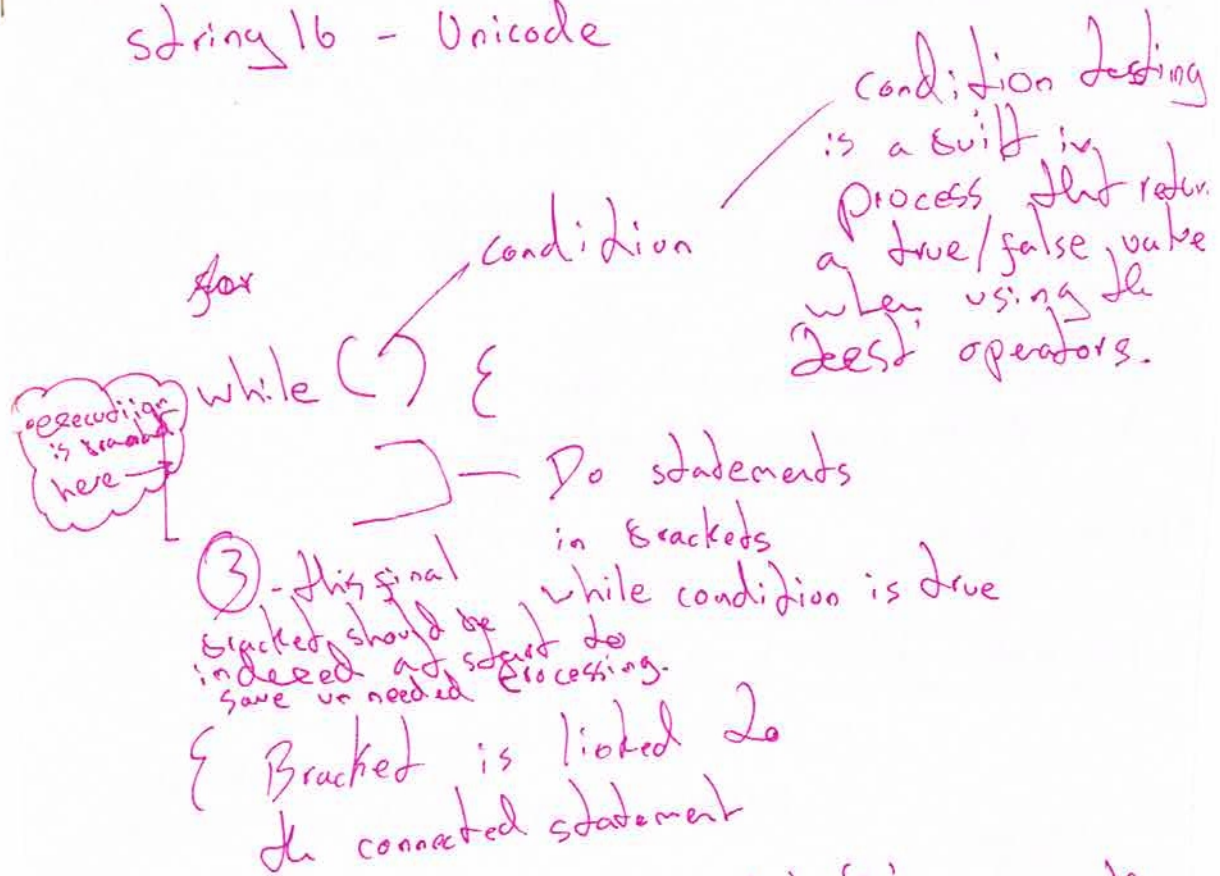 string 16 - Unicode
condition testing
is a built in
process that retur
a true/false value
when using the
operators.
condition
for
while ( ) {
execution
is
here
Do statements
in brackets
while condition is true
3 - this final
bracket should be
indexed at start to
save un needed processing.
{ Bracket is linked to
the connected statement